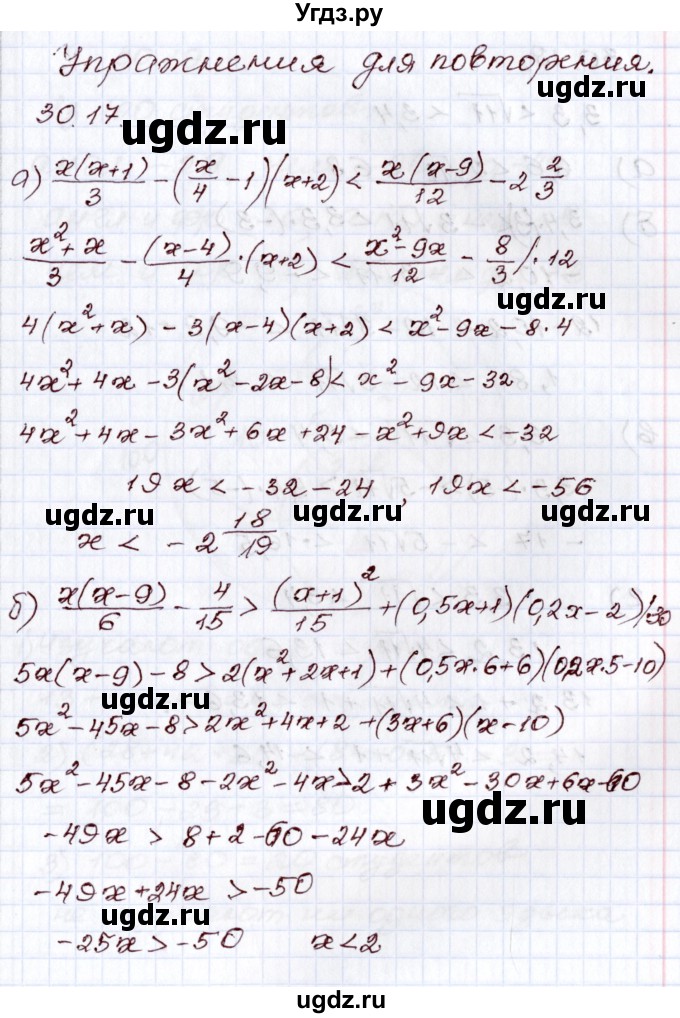 Угдз.ру
Упражнения для повторения.
ugdz.ru
30.17.
ugdz.ru
а) x(x+1)/3 − (x/4 − 1)(x+2) < x(x−9)/12 − 2 2/3
(x²+x)/3 − (x−4)/4 · (x+2) < (x²−9x)/12 − 8/3 /·12
4(x²+x) − 3(x−4)(x+2) < x²−9x−8·4
4x²+4x−3(x²−2x−8)< x²−9x−32
4x²+4x−3x²+6x+24−x²+9x<−32
19x<−32−24, 19x<−56
ugdz.ru ugdz.ru
x < −2 18/19
б) x(x−9)/6 − 4/15 > (x+1)²/15 + (0,5x+1)(0,2x−2) /·30
5x(x−9)−8>2(x²+2x+1)+(0,5x·6+6)(0,2x·5−10)
ugdz.ru
5x²−45x−8>2x²+4x+2+(3x+6)(x−10)
5x²−45x−8−2x²−4x>2+3x²−30x+6x−60
ugdz.ru
−49x > 8+2−60−24x
−49x+24x >−50
ugdz.ru
−25x>−50 x<2
ugdz.ru